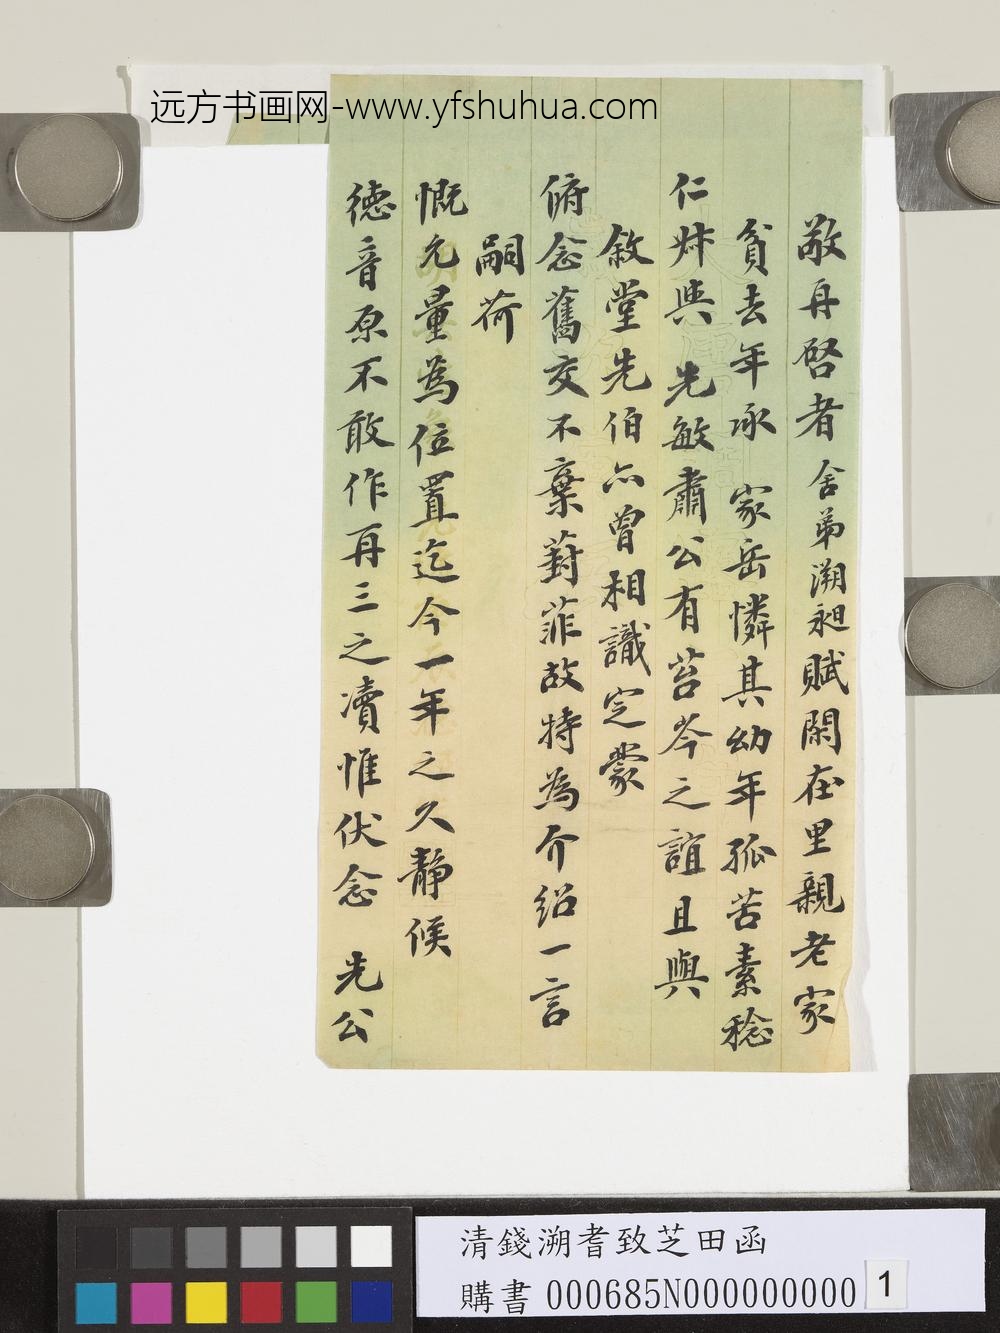 远方书画网-www.yfshuhua.com
敬再啓者舍弟溯昶賦閑在里親老家
貧去年承 家岳憐其幼年孤苦素稔
仁叔與 先敏肅公有苔岑之誼且與
敘堂先伯亦曾相識定蒙
俯念舊交不棄葑菲故特為介紹一言
嗣荷
慨允量為位置迄今一年之久靜候
德音原不敢作再三之瀆惟伏念 先公
清錢溯耆致芝田函
購書000685N000000000 1